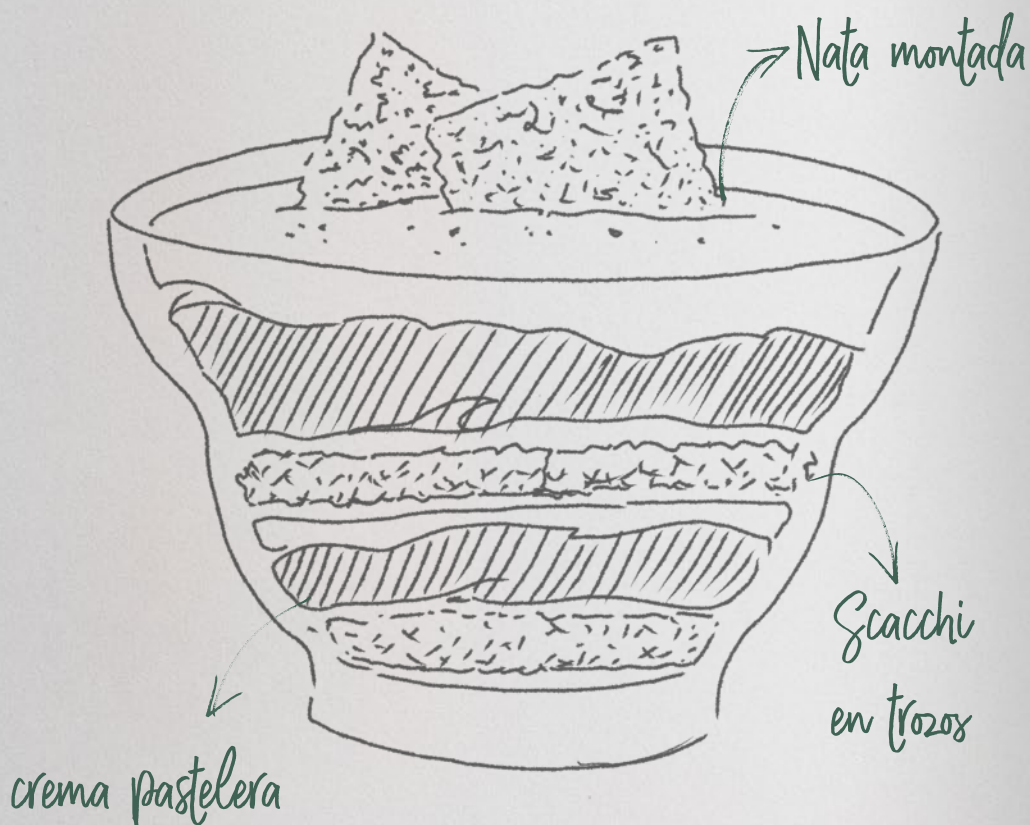 Nata montada
Scacchi
en trozos
crema pastelera